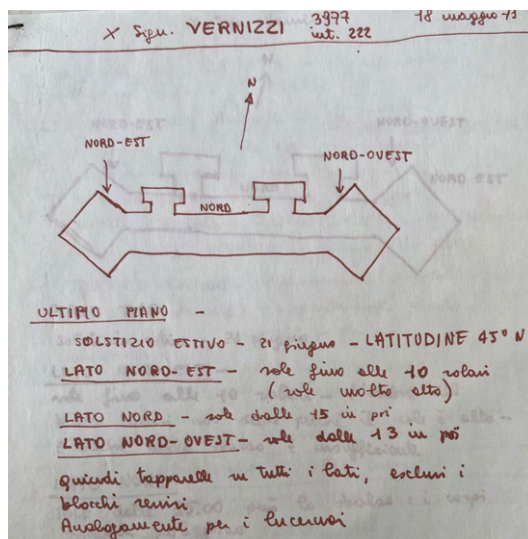 X Sign. VERNIZZI 3977 18 maggio 73
int. 222
N
NORD-EST
NORD-OVEST
NORD
ULTIMO PIANO -
SOLSTIZIO ESTIVO - 21 giugno - LATITUDINE 45° N
LATO NORD-EST - sole fino alle 10 solari
(sole molto alto)
LATO NORD - sole dalle 15 in poi
LATO NORD-OVEST - sole dalle 13 in poi
quindi tapparelle su tutti i lati, esclusi i
blocchi servizi
Analogamente per i lucernai